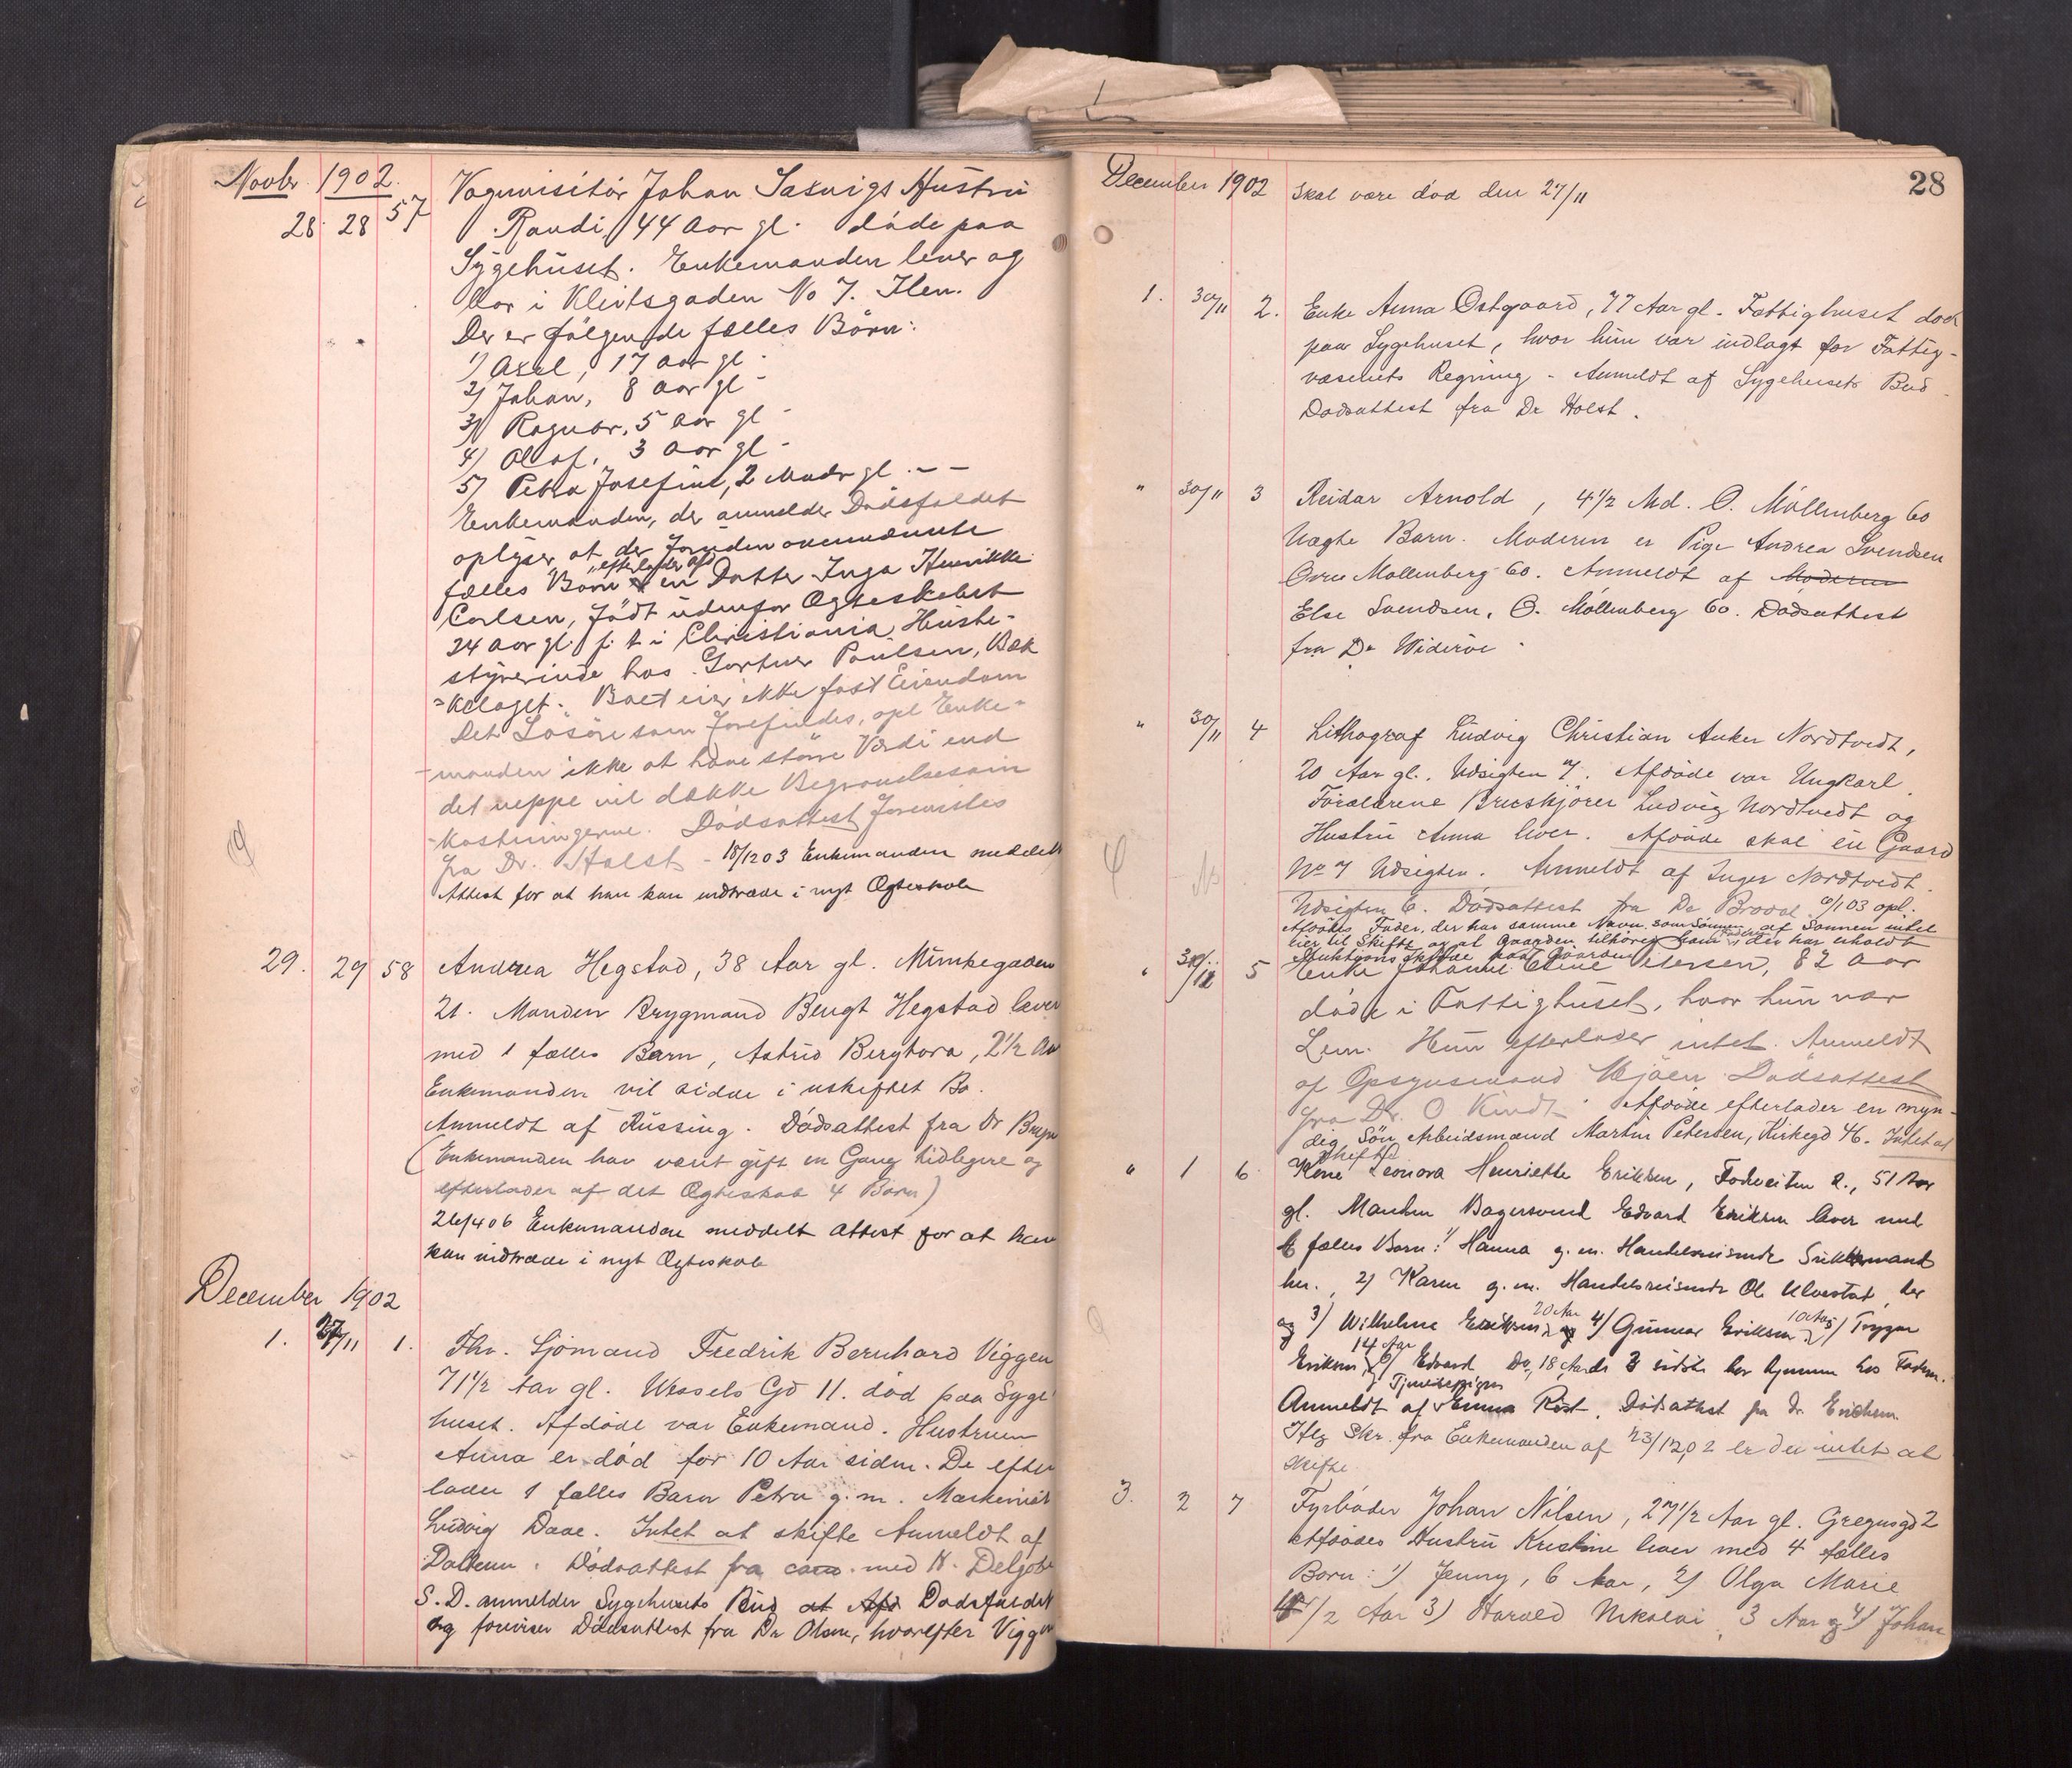 Novbr. 1902.
28. 28 57 Vognvisitör Johan Sasvigs Hustru
Randi, 44 Aar gl. döde paa
Sygehuset. Enkemanden lever og
bor i Kleitsgaden No 7. Ilen.
Der er fölgende fælles Börn:
1) Axel, 17 aar gl -
2) Johan, 8 aar gl -
3) Ragnar, 5 aar gl -
4) Olaf, 3 aar gl -
5) Petra Josefine, 2 Mndr gl. - -
Enkemanden, der anmelder Dödsfaldet
oplyser at der foruden ovennævnte
fælles Börn efterlades en Datter Inga Henrikke
Carlsen, födt udenfor Ægteskabet
24 aar gl. f. t. i Christiania, Huste-
styrerinde hos Gartner Paulsen, Bæk
=kelaget. Boet eier ikke fast Eiendom
Det Lösöre som forefindes, opl Enke-
-manden ikke at have större Værdi end
det neppe vil dække Begravelsesom
-kostningerne. Dödsattest forevistes
fra Dr. Holst - 18/12 03 Enkemanden meddelt
Attest for at han kan indtræde i nyt Ægteskab
29. 29 58 Andrea Hegstad, 38 Aar gl. Munkegaden
21. Manden Brygmand Bengt Hegstad lever
med 1 fælles Barn, Astrid Bergtora, 2 1/2 Aar
Enkemanden vil sidde i uskiftet Bo.
Anmeldt af Russing. Dödsattest fra Dr Bruun
(Enkemanden har været gift en Gang tidligere og
efterlader af det Ægteskab 4 Börn)
26/4 06 Enkemanden meddelt Attest for at han
kan indtræde i nyt Ægteskab
December 1902
1. 27/11 1. Fhv. Sjömand Fredrik Bernhard Viggen
71 1/2 Aar gl. Wessels Gd 11. död paa Syge
huset. Afdöde var Enkemand. Hustruen
Anna er död for 10 Aar siden. De efter
lader 1 fælles Barn Petra g. m. Maskinist
Ludvig Daae. Intet at skifte Anmeldt af
Datteren. Dödsattest fra cand. med N. Deljobe
S. D. anmelder Sygehusets Bud at Afd Dödsfaldet
og foreviser Dödsattest fra Dr Olsen, hvorefter Viggen
December 1902 Skal være död den 27/11
28
1. 30/11 2. Enke Anna Östgaard, 77 Aar gl. Fattighuset död
paa Sygehuset, hvor hun var indlagt for Fattig-
væsenets Regning - Anmeldt af Sygehusets Bud
Dödsattest fra Dr Holst.
" 30/11 3 Reidar Arnold, 4 1/2 Md. Ö. Möllenberg 60
Uægte Barn. Moderen er Pige Andrea Svendsen
Övre Möllenberg 60. Anmeldt af Moderen
Else Svendsen, Ö. Möllenberg 60. Dödsattest
fra Dr Wideröe
" 30/11 4 Lithograf Ludvig Christian Anker Nordtvedt,
20 Aar gl. Udsigten 7. Afdöde var Ungkarl.
Forældrene Bruskjörer Ludvig Nordtvedt og
Hustru Anna lever. Afdöde skal eie Gaard
No 7 Udsigten. Anmeldt af Inger Nordtvedt.
Udsigten 6. Dödsattest fra Dr Brodal 6/1 03 opl.
Afdödes Fader, der har samme Navn som Sönnen, at Sönnen intet
eier til Skifte og at Gaarden tilhörer ham Faderen der har erholdt
Auktionsskjöde paa Gaarden
" 30/11 5 Enke Johanne Eline Petersen, 82 Aar
döde i Fattighuset, hvor hun var
Lem. Hun efterlader intet. Anmeldt
af Opsynsmand Mjöen. Dödsattest
fra Dr. O Kindt. Afdöde efterlader en myn-
dig Sön Arbeidsmand Martin Petersen, Kirkegd 46. Intet at
skifte
" 1 6 Kone Leonora Henriette Eriksen, Fodveiten 2., 51 Aar
gl. Manden Bagersvend Edvard Eriksen lever med
6 fælles Barn: 1) Hanna g. m. Handelsreisende
her., 2) Karen g. m. Handelsreisende O. Ulvestad, her
og 3) Wilhelm Eriksen 20 Aar og 4) Gunnar Eriksen 10 Aar 5) Trygve
Eriksen 14 Aar og 6) Edvard Do, 18 Aar de 3 sidste bor hjemme hos Faderen.
Anmeldt af Tjenestepigen Emma Röst. Dödsattest fra Dr. Erichsen
Iflg Skr. fra Enkemanden af 23/12 02 er der intet at
skifte
3. 2 7 Fyrböder Johan Nilsen, 27 1/2 Aar gl. Gregusgd 2
Afdödes Hustru Kristine lever med 4 fælles
Börn: 1) Jenny, 6 Aar, 2) Olga Marie
4 1/2 Aar 3) Harald Nikolai, 3 Aar og 4) Johan